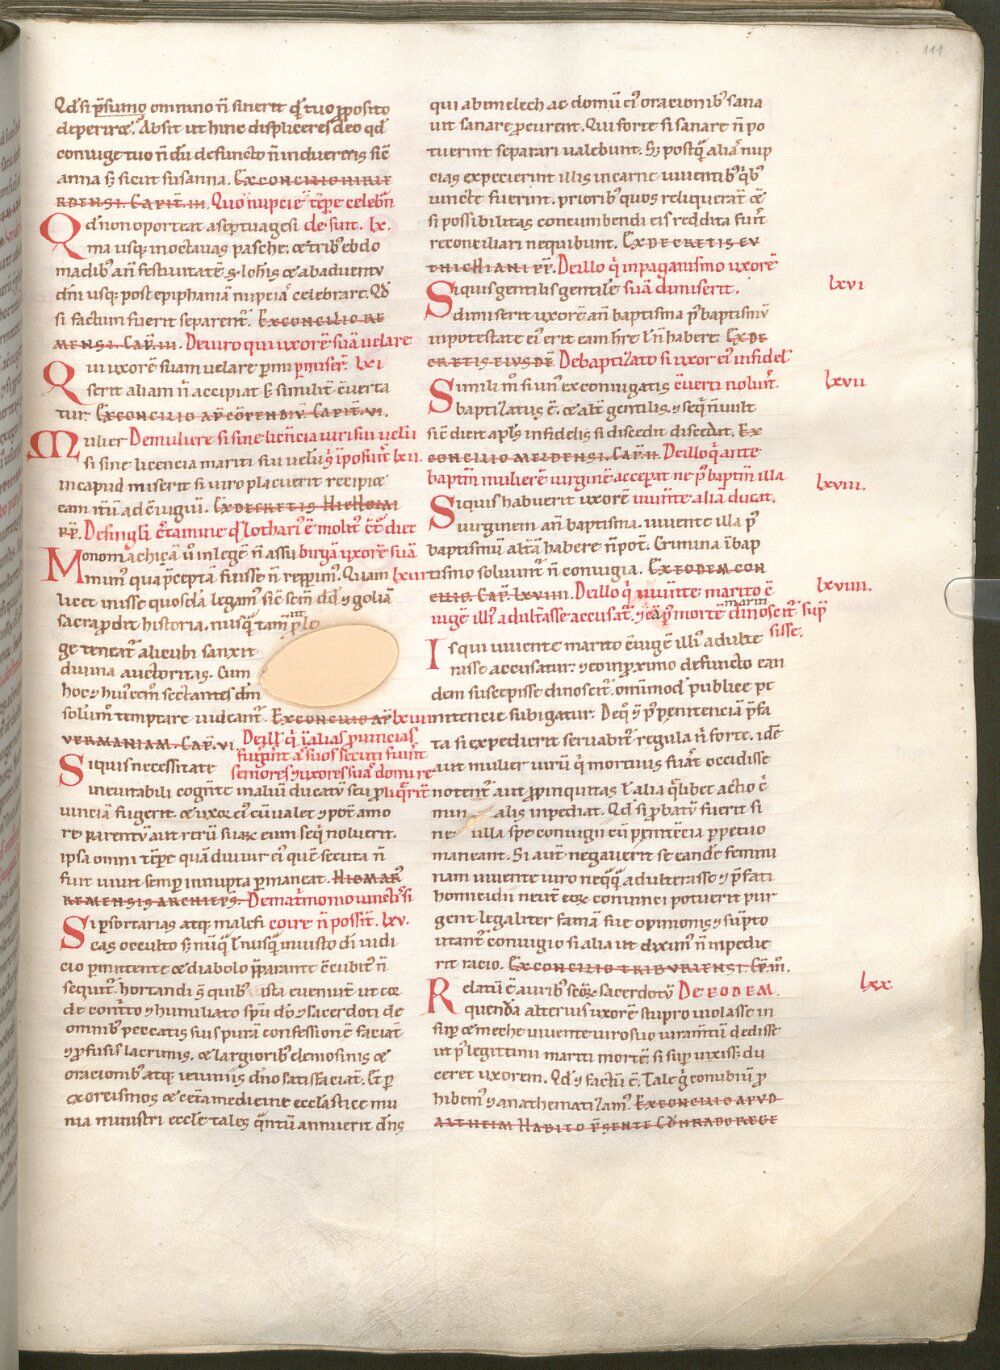 111
Qd̄ si p̄sumo omnino n̄ sinerit qd̄ tuo p̱posito
deperiret. Absit ut hinc displiceres deo qd
coniuge tuo n̄dū defuncto n̄ induereris sic̄
anna s; sicut susanna. Ex concilio hiler
rdensi. Capit̄. iii. Quo nupcie tēpe celebn̄
Qd̄ non oporteat a septuagesi de sint. lx.
ma usq; in octauas pasche. et trib; ebdo
madib; an̄ festiuitatē s. ioh̄is et ab aduentu
dn̄i usq; post epiphaniā nupcias celebrare. Qd̄
si factum fuerit separent̄. Ex concilio re
mensi. Cap̄. iii. De uiro qui uxorē suā uelare
Qui uxorē suam uelare permi permiser̄. lxi
serit aliam n̄ accipiat s; similit̄ c̄uerta
tur. Ex concilio ap̄ cōpendiū. Capit̄. vi.
Mulier De muliere si sine licencia uiri sui uelū
si sine licencia mariti sui uelū s̄ īposuit̄ lxii.
in capud miserit si uiro placuerit recipiet
eam it̄ū ad c̄iugiū. Ex decretis Nicholai
pp̄. De singlī c̄tamine qd̄ lothari; c̄ molit; c̄t̄ diet
Monomachiçā u̅ in lege n̄ assu burgā uxorē suā
mim; quā p̄ceptā fuisse n̄ repperim;. Quam lxiii
licet inisse quosdā legam; sic̄ sc̄m dd̄ ⁊ goliā
sacra p̱dit historia. nusq̄ tam̄ p̱ lo
ge teneat̄ alicubi sanxit
diuina auctoritas. Cum
hoc ⁊ hui;cem̄ sectantes dm̄
solum̄ temptare uideant̄. Ex concilio ap̄ lxiiii
vermaniam. Cap̄. vi. De illˢ q̄ ī alias p̱uincias
Siquis necessitate fugiun̄t aū suos secuti fuin̄t
seniores ⁊ uxores suaˢ domi re
ineuitabili cogn̄te in aliū ducatū seu p̱ liq̄rit̄
uinciā fugerit. et uxor ei; cū ualet ⁊ pot̄ amo
re parentū aut rerū suaꝝ eum seq̄ noluerit.
ipsa omni tēpe quā diu uir ei; quē secuta n̄
fuit uiuit semp̱ innupta p̱maneat. Hicmar;
remensis archiep̄s. De mat̄monio uinct;ˢ si
Si p̱ sortiarias atq; malefi coire n̄ possit̄. lxv.
cas occulto s; nūq̄ l̄ nusq̄ iniusto dī iudi
cio p̱mittente et diabolo p̄parante c̄cubit; n̄
sequit̄. hortandi s̄ quib; ista eueniūt ut cor
de cont̄to ⁊ humiliato sp̄u dō ⁊ sacerdoti de
omnib; peccatis suis purā confessionē faciāt
⁊ p̱fusis lacrimis. et largiorib; elemosinis et
oracionib; atq; ieiuniis dn̄o satisfaciat̄. Et p̱
exorcismos et cet̄a medicine eccl̄astice mu
nia ministri eccl̄e tales q̄ntū annuerit dn̄s
qui abimelech ac domū ei; oracionib; sana
uit sanare p̱curent. Qui forte si sanare n̄ po
tuerint separari ualebunt. S; postq̄ aliaˢ nup
cias expecierint illis in carne uiuentib; q̄b;
iuncte fuerint. priorib; quos reliquerāt et̄
si possibilitas concumbendi eis reddita fuit̄
reconciliari nequibunt. Ex decretis eu
thichiani pp̄. De illo q̄ in paganismo uxorē
Siquis gentilis gentilē suā dimiserit. lxvi
dimiserit uxorē an̄ baptisma p̄ baptismū
in potestate ei; erit eam hr̄e l̄ n̄ habere. Ex de
cretis eiusdē. De baptizato si uxor ei; infidel̄
Simili m̄ si un; ex coniugatis c̄uerti noluit̄. lxvii
baptizatus ē. et alt̄ gentilis. ⁊ seq̄ n̄ uult
sic̄ dicit apl̄s infidelis si discedit discedat. Ex
concilio meldensi. Cap̄. ii. De illo q̄ ante
baptm̄ mulierē uirginē acceperit ne p̄ baptm̄ illa
Siquis habuerit uxorē uiuēnte aliā ducat. lxviii.
uirginem an̄ baptisma. uiuente illa p̄
baptismū altā habere n̄ pot̄. Crimina ī bap
tismo soluunt̄ n̄ coniugia. Ex eodem con
cilio. Cap̄. lxviiii. De illo q̄ uiuēnte marito c̄ lxviiii.
iugē illi; adult̄asse accusat̄. ⁊ ea p̄ mortē mariti dinoscit̄ sūp
sisse.
Is qui uiuente marito c̄iugē illi; adulte
rasse accusatur. ⁊ eo in p̱ximo defuncto ean
dem suscepisse dinoscit̄. om̄imod; publice pe
nitencie subigatur. De q; ⁊ p̄ penitenciā p̄fa
ta si expedierit seruabit̄ regula n̄ forte. idē
aut mulier uirū q̄ mortuus fuāt occidisse
notent̄ aut p̱pinquitas l̄ alia q̄libet actio c̄
min alis inpediat. Qd̄ si p̱batū fuerit si
ne ulla spe coniugii cū penitēcia p̱petuo
maneant. Si aūt negauerit se eandē femini
nam uiuente uiro neq̄q̄ adulterasse ⁊ p̄fati
homicidii neut̄ eoꝝ conuinci potuerit pur
gent legaliter famā sue opinionis ⁊ sūpto
utant̄ coniugio si alia ut dixim; n̄ inpedie
rit racio. Ex concilio triburiensi. Cap̄. iii.
Relatū ē aurib; scōꝝ sacerdotū De eodem. lxx
quendā alterius uxorē stupro uiolasse in
sup̱ et meche uiuente uiro suo iuram̄tū dedisse
ut p̄ legittimi mariti mortē si sup̱ uixiss; du
ceret uxorem. Qd̄ ⁊ factū ē. Tale ḡ conubiū p̱
hibem; ⁊ anathematizam;. Ex concilio apud
altheim habito p̄sente Cōnrado rege